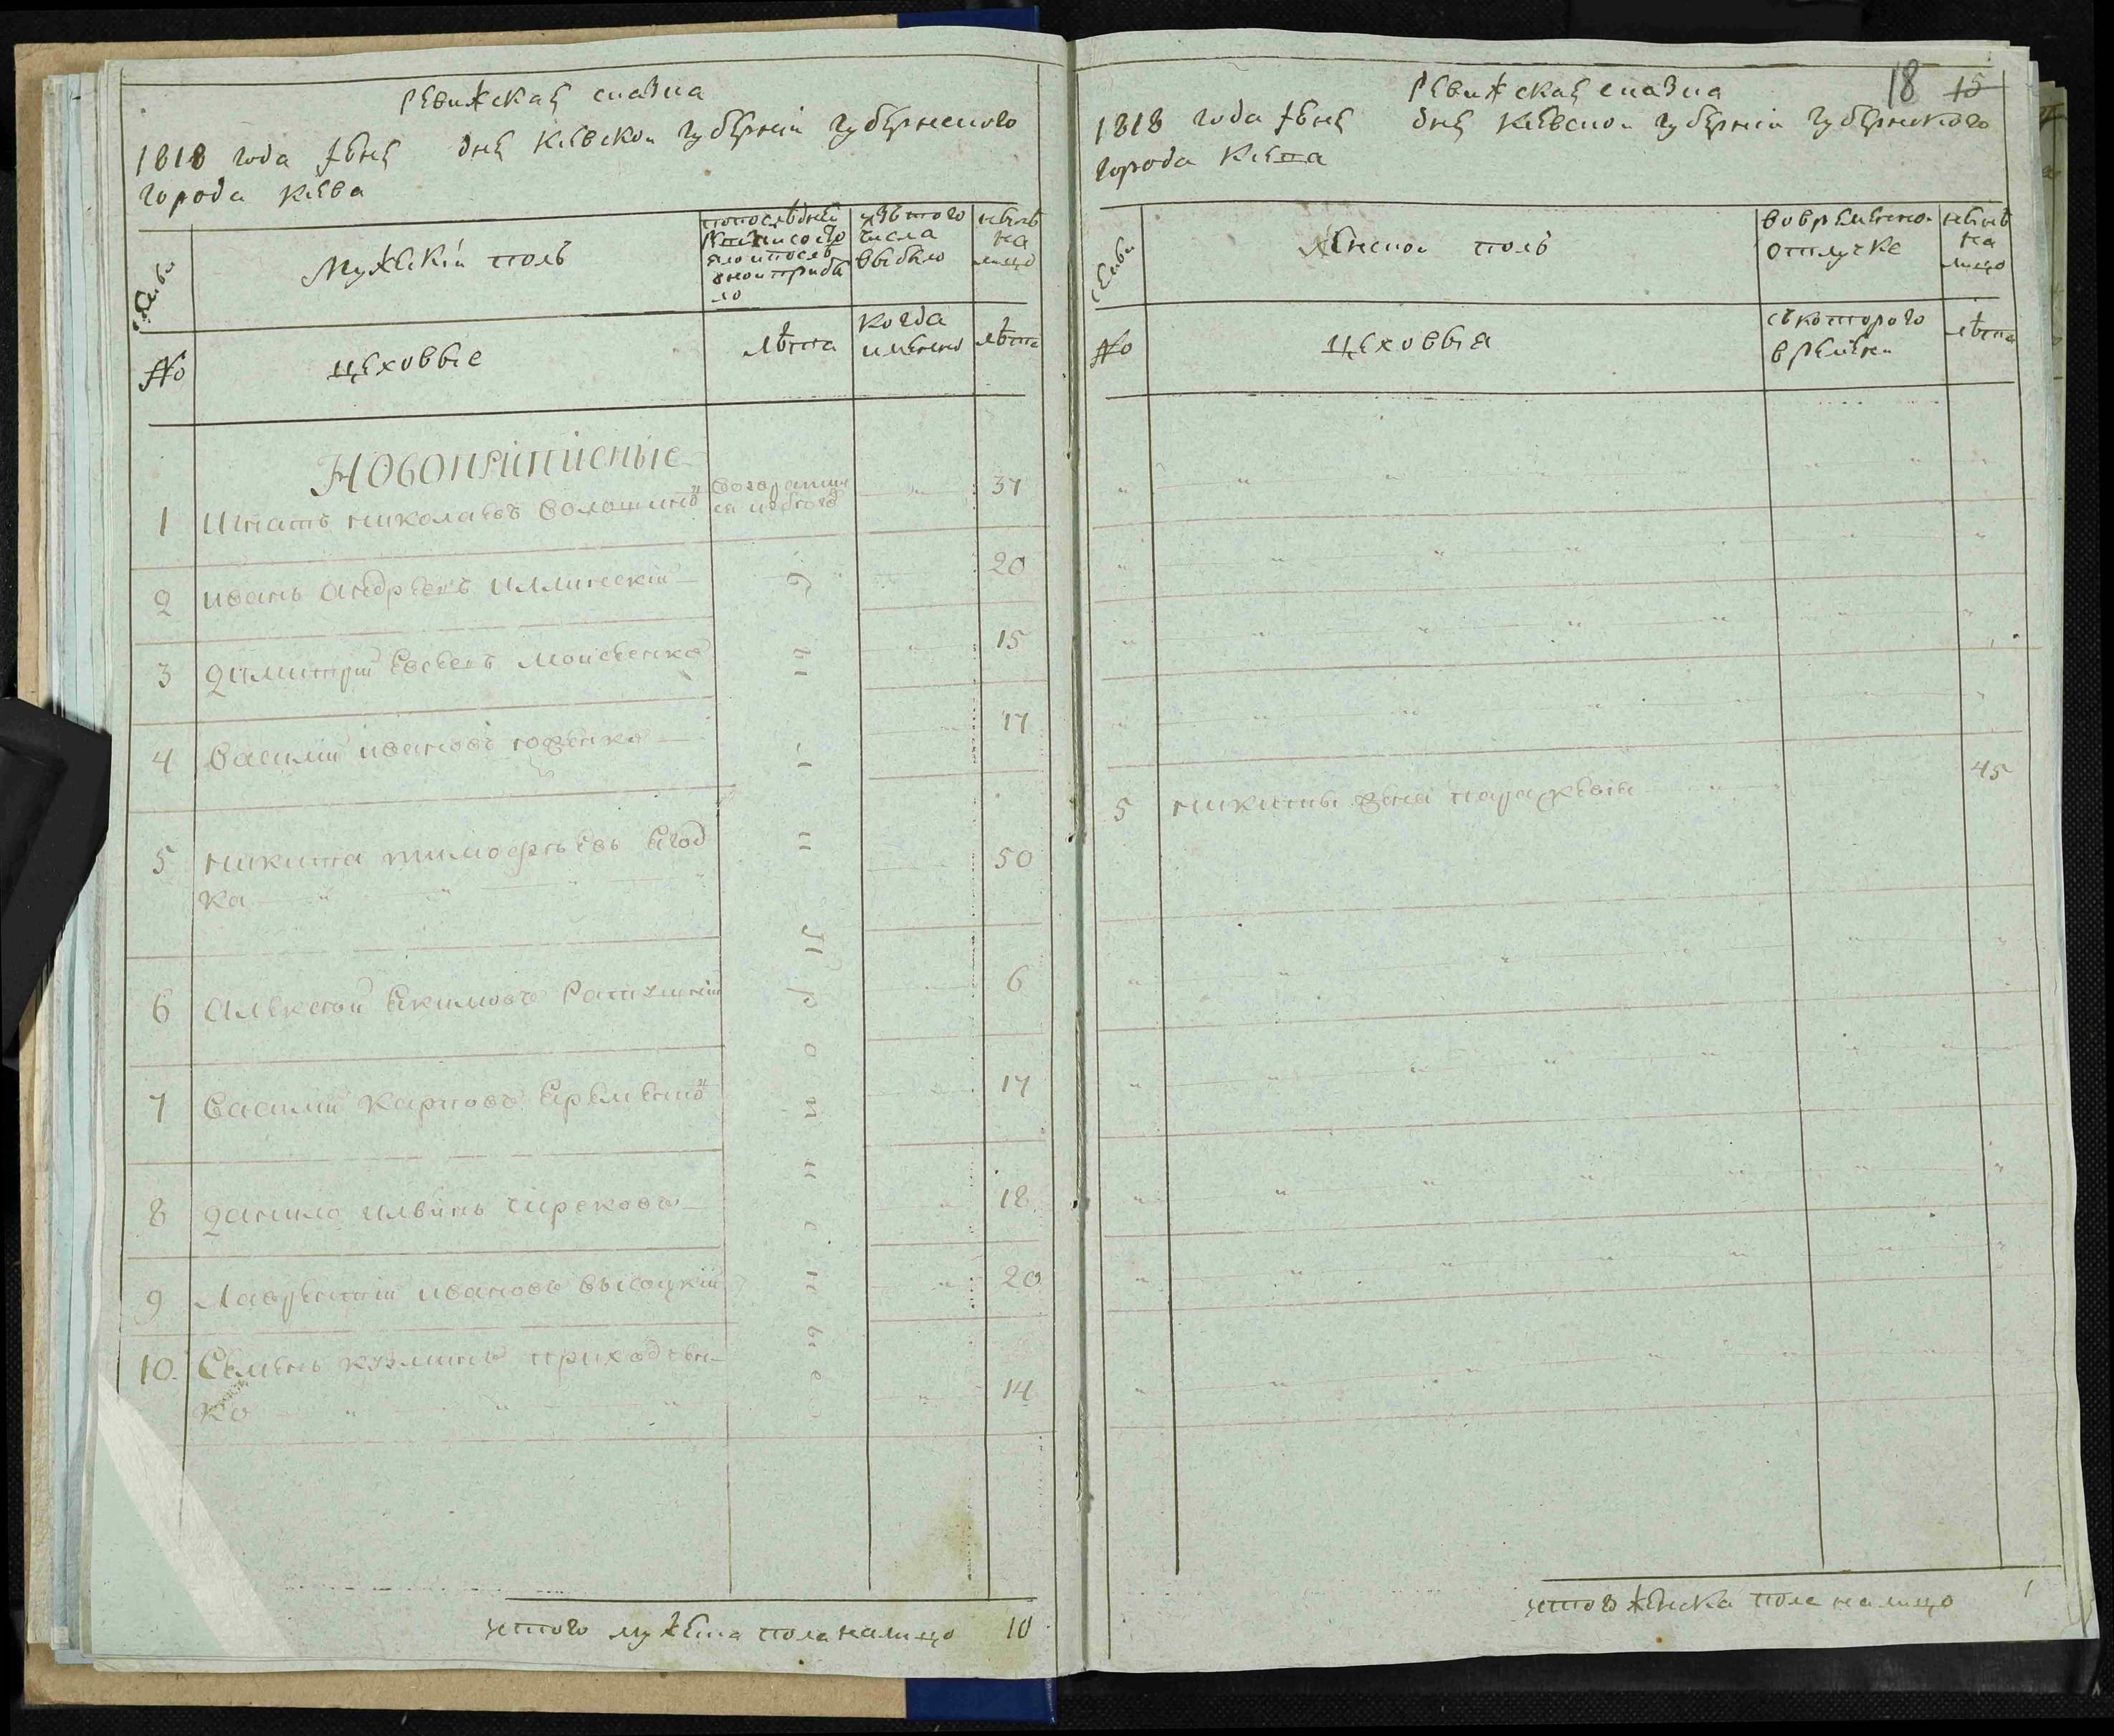 Ревижская сказка
1818 года июня дня киевской губернии губернского
города киева
семьи
Мужеский полъ
попоследней
ревизии состо
яло и после
оной прибы
ло
изътого
числа
выбыло
ныне
на
лицо
No
цеховые
лѣта
когда
именно
лѣта
Новоприписные
1 Игнатъ николаевъ Волошинъ
Возвратив
ся избегов
37
2 иванъ андреевъ иллинский 20
3 Димитрий Евсеевъ Моисеенко 15
4 Василий ивановъ ющенко 17
5 никита тимофеевъ Ягод
ка 50
6 Алексей Екимовъ 6
7 Василий Карповъ 17
8 Данило ильинъ 18
9 Лаврентий ивановъ высоцкий 20
10. Семенъ кузминъ приходчен-
ко 14
вновь приписные
итого мужеска пола налицо 10
18 15
Ревижская сказка
1818 года июня дня киевской губернии губернского
города киева
семьи
Женской полъ
вовременной
отлучке
ныне
на
лицо
No
цеховыя
с котораго
времени
лѣта
5 никиты жена параскевия 45
итого женска пола налицо 1